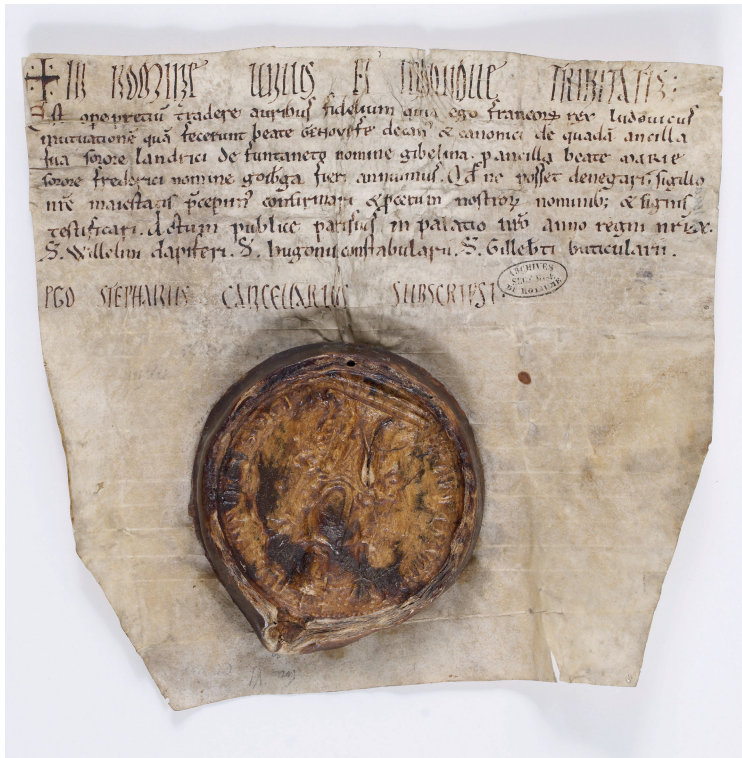 ✝ IN NOMINE UNIUS ET INDIVIDUE TRINITATIS:
Est operepretiū tradere auribus fidelium quia ego francorum rex ludovicus
mutuationē quā fecerunt beate GENOVEFE decan' & canonici de quadā ancilla
sua sorore landrici de funtaneto nomine gibelina. p ancilla beate MARIE
sorore frederici nomine fieri annuimus. Qd ne posset denegari, sigillo
nr̄e maiestatis p̄cepim' confirmari & p̄cerum nostroꝝ nominib; & signis
testificari. Actum publice parisius in palatio anno regni nr̄i
S. Willelmi dapiferi. S. hugonis constabularii. S. Gilleb̄ti buticularii.
EGO STEPHANUS CANCELLARIUS SUBSCRIPSI.
ARCHIVES
DU ROYAUME